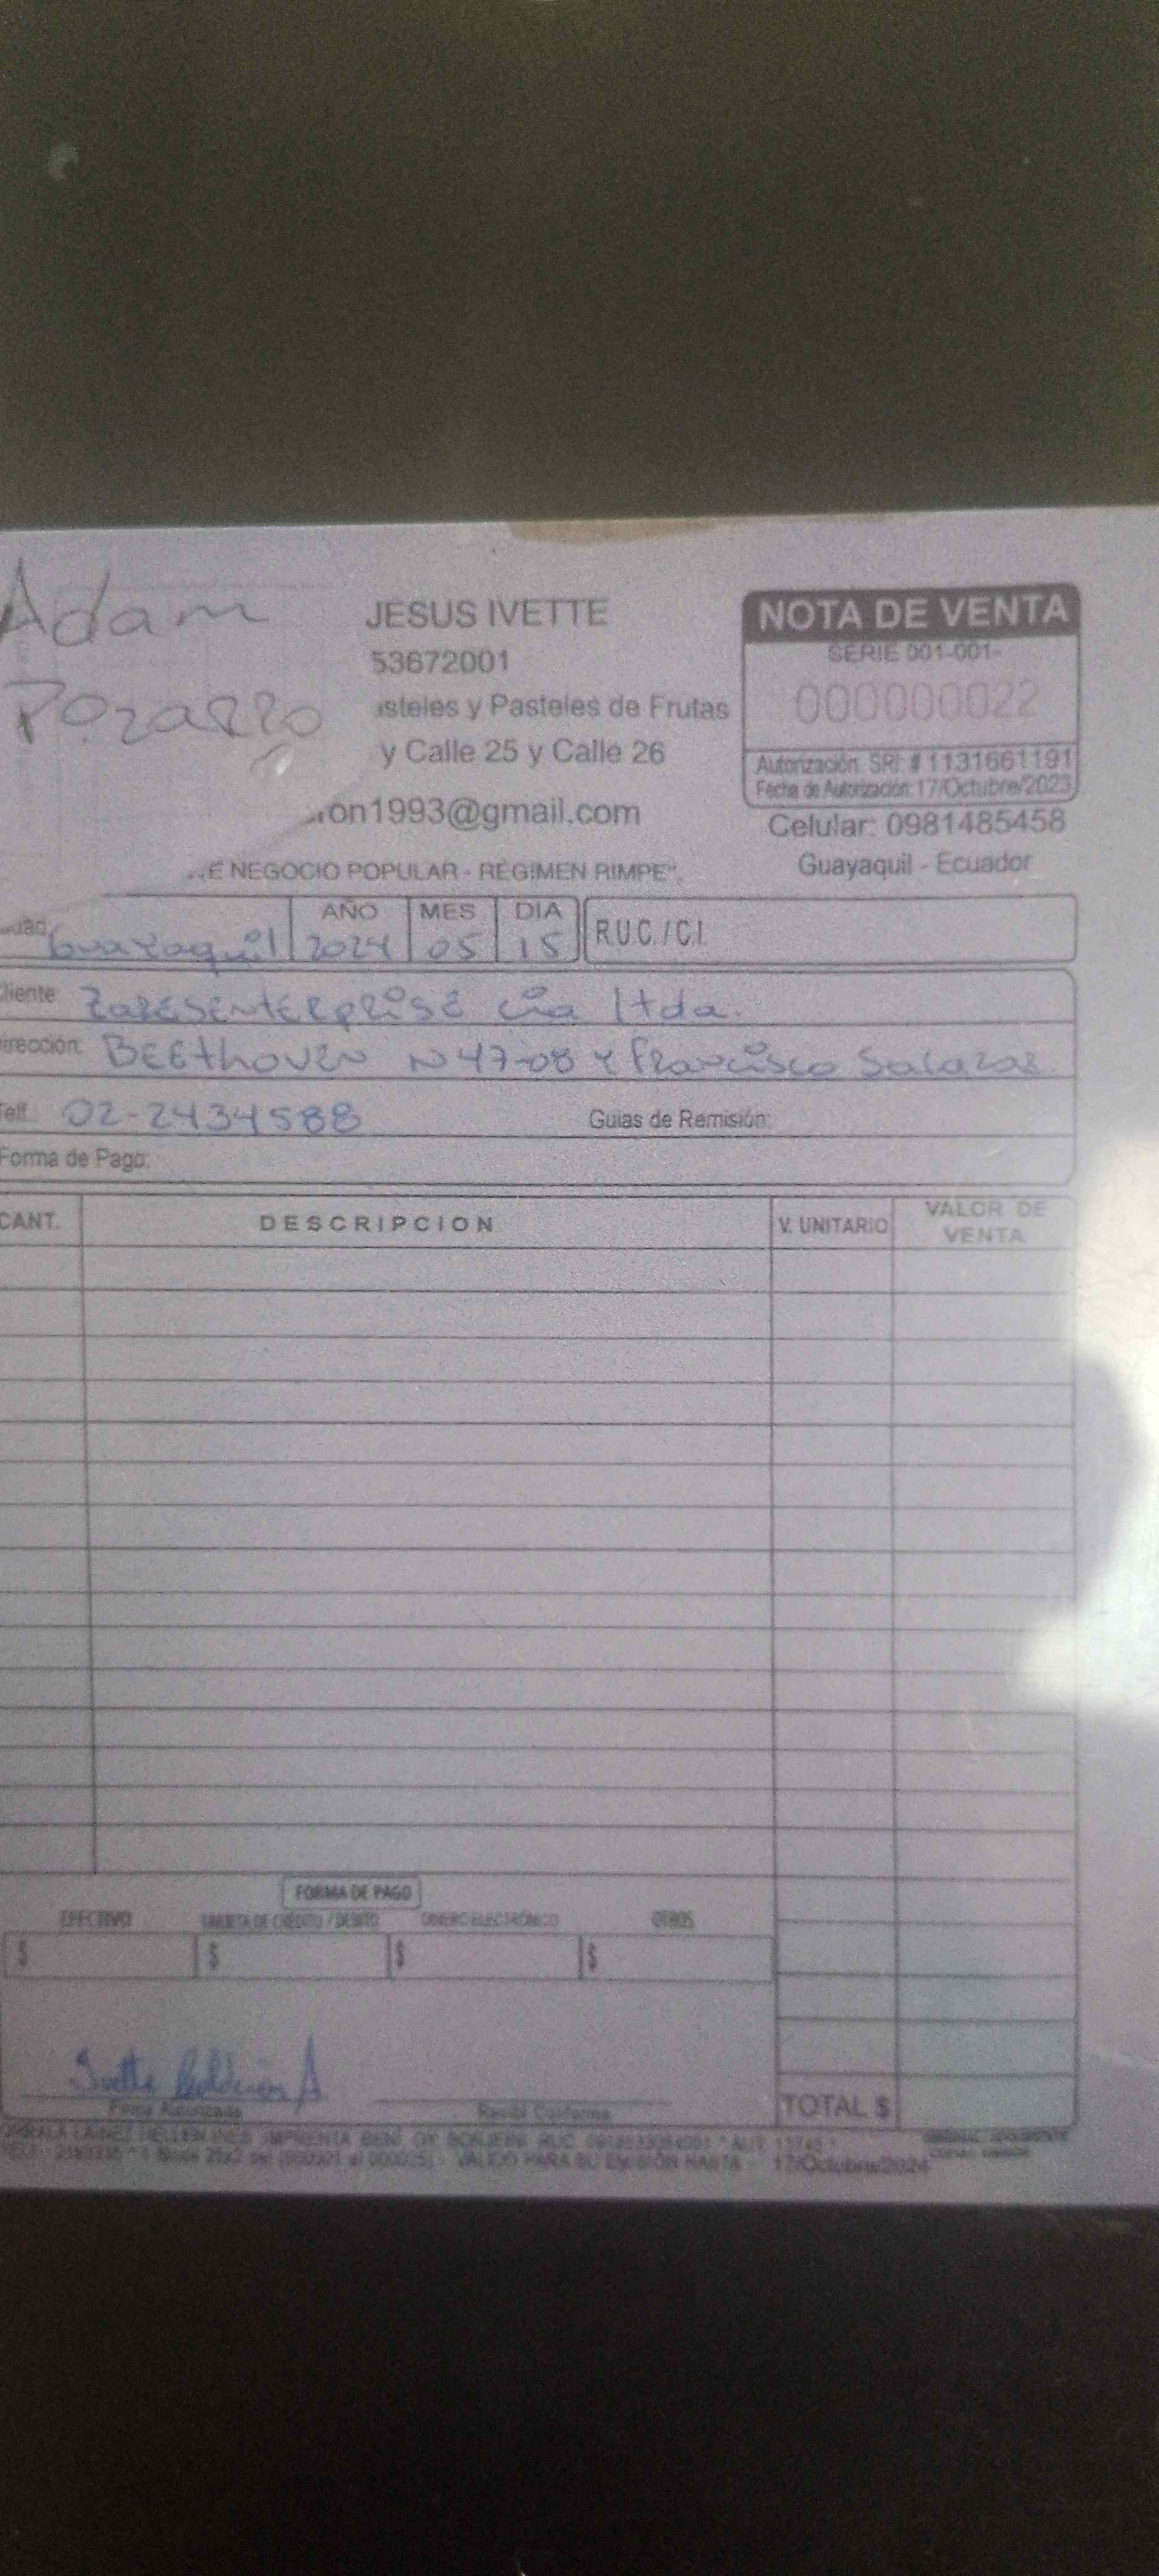 Adam
Pozarro
JESUS IVETTE
53672001
steles y Pasteles de Frutas
y Calle 25 y Calle 26
ron1993@gmail.com
E NEGOCIO POPULAR - RÉGIMEN RIMPE".
NOTA DE VENTA
SERIE 001-001-
000000022
Autorización. SRI: # 1131661191
Fecha de Autorización: 17/Octubre/2023
Celular: 0981485458
Guayaquil - Ecuador
Guayaquil
AÑO MES DIA
2024 05 15
R.U.C. / C.I.
liente: ZaresEnterprise cia ltda.
irección: Beethoven N47-08 y Francisco Salazar.
Telf.: 02-2434588 Guias de Remisión:
Forma de Pago:
CANT. DESCRIPCION V. UNITARIO VALOR DE VENTA
FORMA DE PAGO
EFECTIVO TARJETA DE CRÉDITO / DEBITO DINERO ELECTRÓNICO OTROS
$ $ $ $
Firma Autorizada Recibí Conforme
TOTAL $
VALIDO PARA SU EMISIÓN HASTA - 17/Octubre/2024